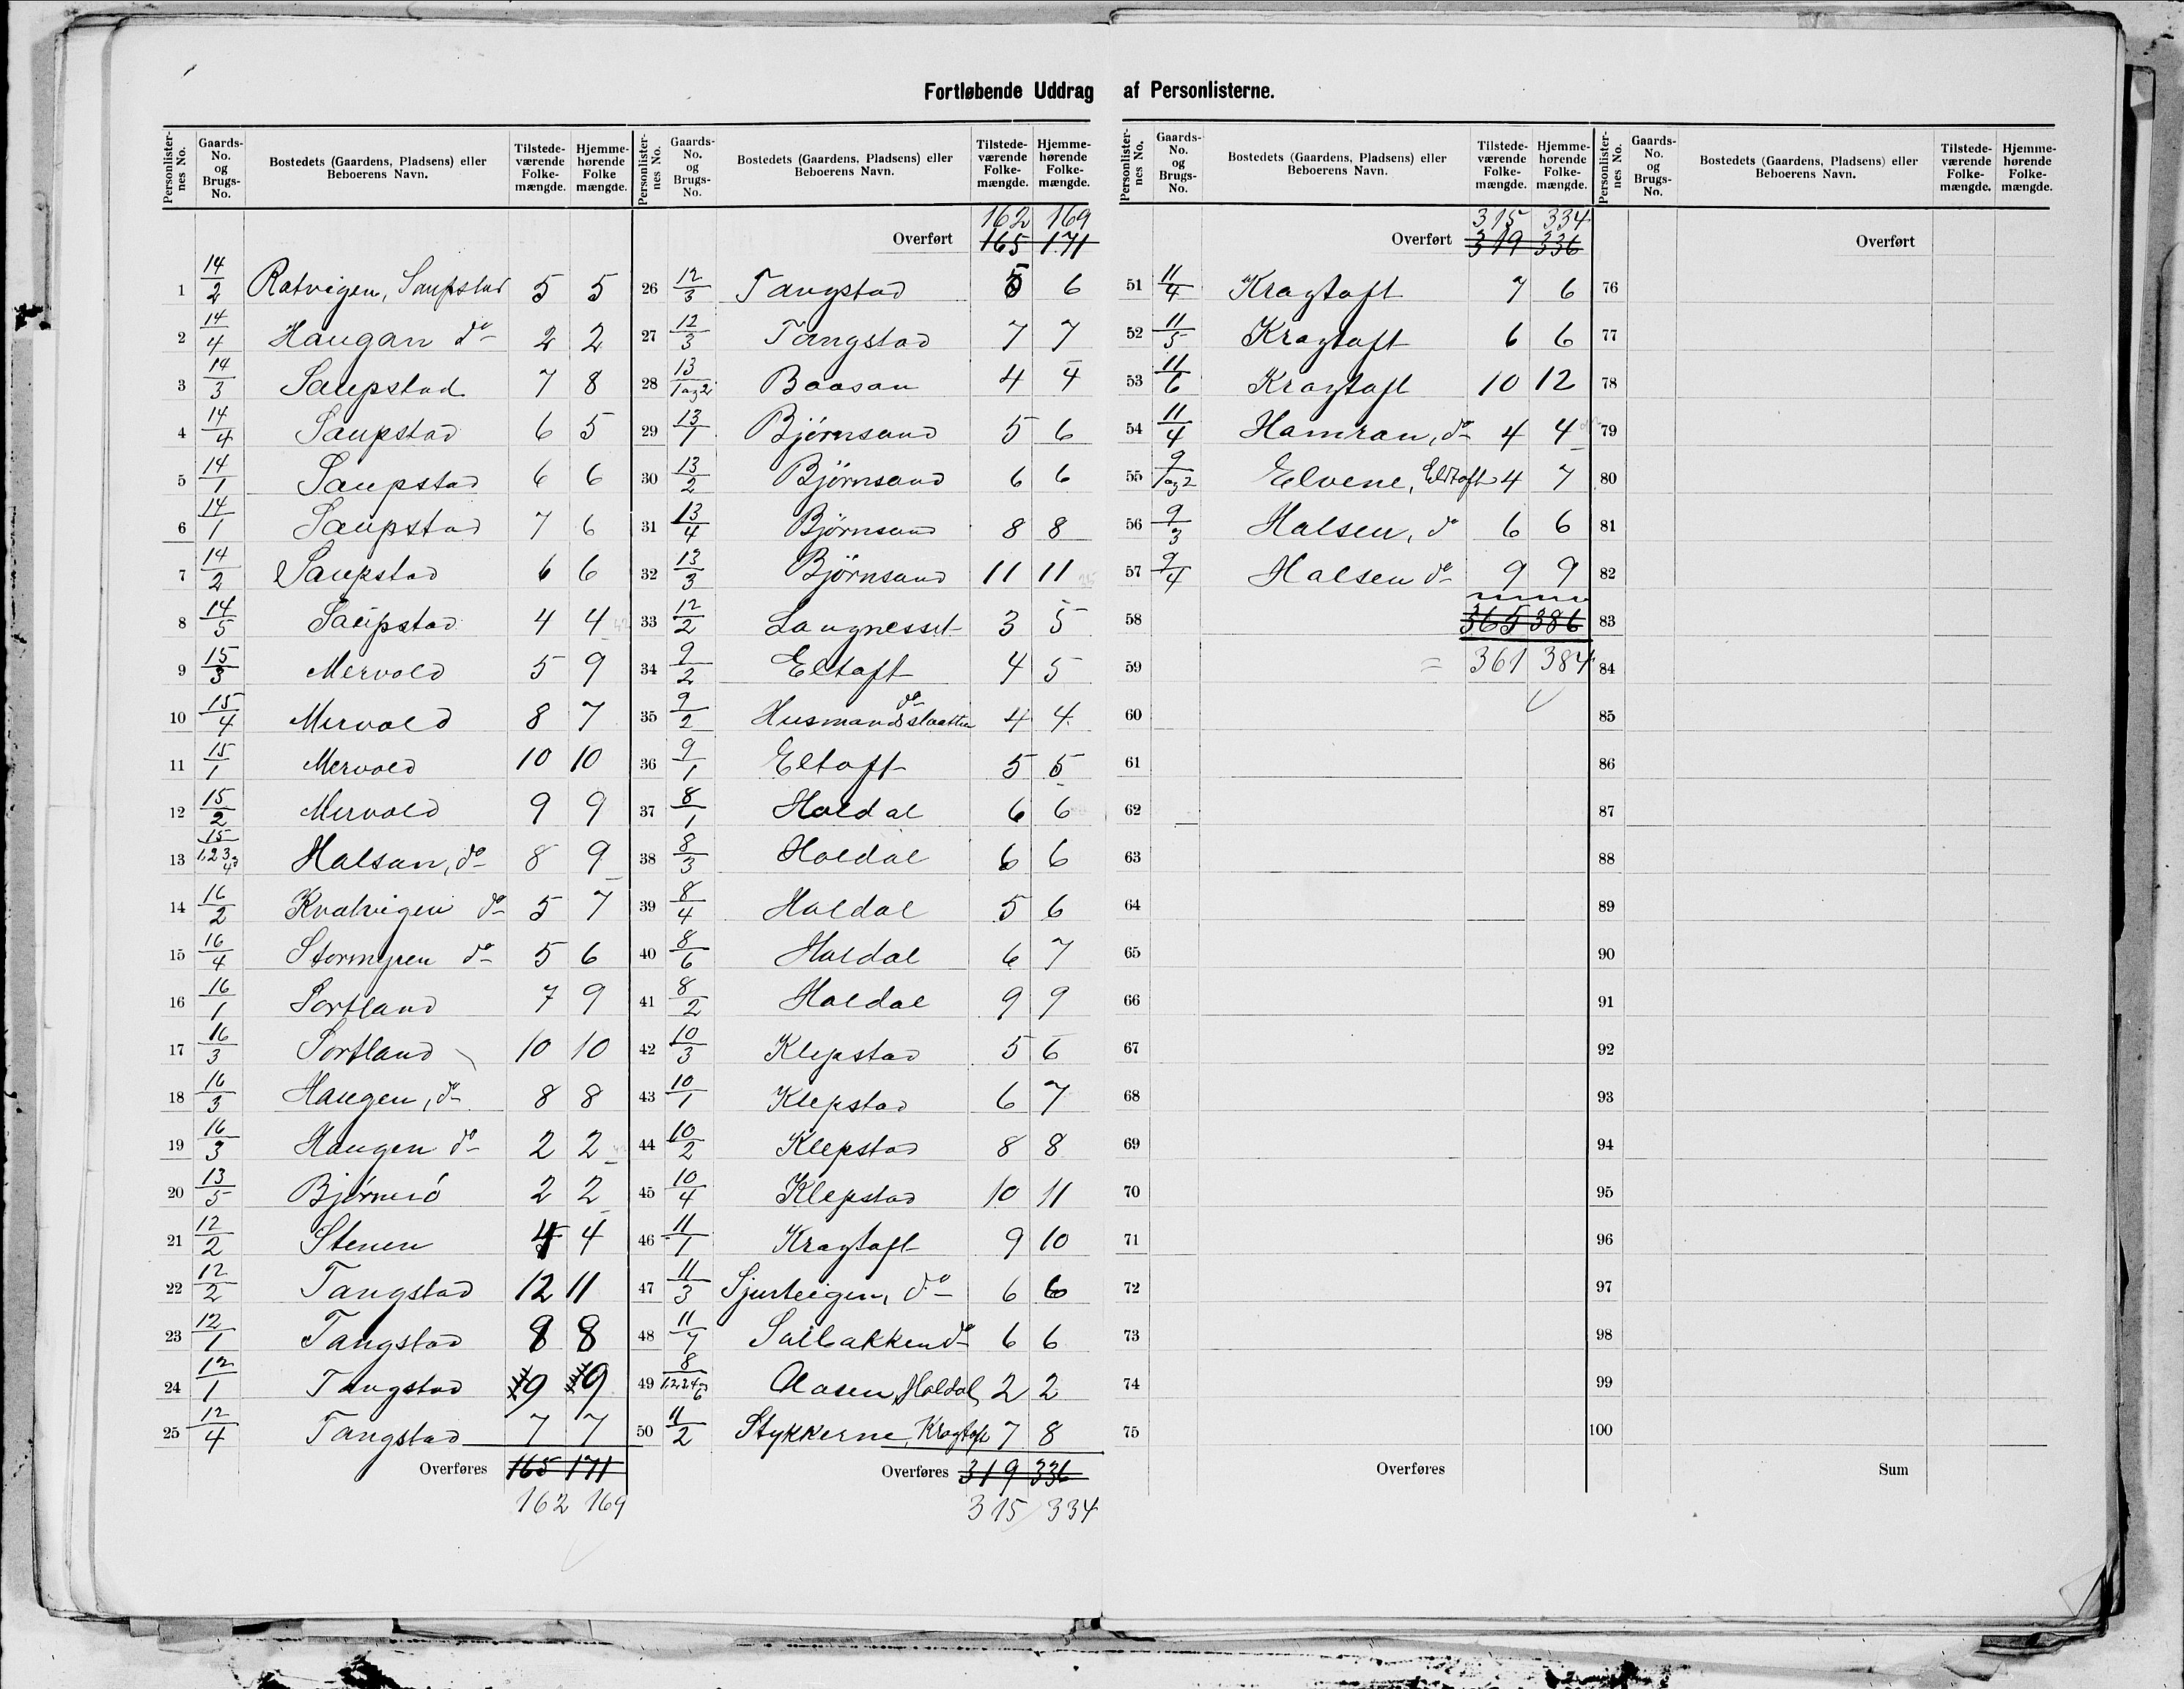 Fortløbende Uddrag af Personlisterne.
Personlister-nes No. Gaards-No. og Brugs-No. Bostedets (Gaardens, Pladsens) eller Beboerens Navn. Tilstede-værende Folke-mængde. Hjemme-hørende Folke mængde.
1 14/2 Ratvigen, Saupstad 5 5
2 14/4 Haugan do 2 2
3 14/3 Saupstad 7 8
4 14/4 Saupstad 6 5
5 14/1 Saupstad 6 6
6 14/1 Saupstad 7 6
7 14/2 Saupstad 6 6
8 14/5 Saupstad 4 4
9 15/3 Mervold 5 9
10 15/4 Mervold 8 7
11 15/1 Mervold 10 10
12 15/2 Mervold 9 9
13 15/1,2,3,4 Halsan, do 8 9
14 16/2 Kvalvigen do 5 7
15 16/4 Stormyren do 5 6
16 16/1 Sortland 7 9
17 16/3 Sortland 10 10
18 16/3 Haugen, do 8 8
19 16/3 Haugen do 2 2
20 13/5 Bjørnsö 2 2
21 12/2 Stenen 4 4
22 12/2 Tangstad 12 11
23 12/1 Tangstad 8 8
24 12/1 Tangstad 9 9
25 12/4 Tangstad 7 7
Overføres 165 171
162 169
Personlister-nes No. Gaards-No. og Brugs-No. Bostedets (Gaardens, Pladsens) eller Beboerens Navn. Tilstede-værende Folke-mængde. Hjemme-hørende Folke-mængde.
162 169
Overført 165 171
26 12/3 Tangstad 5 6
27 12/3 Tangstad 7 7
28 13/1og2 Baasan 4 4
29 13/1 Bjørnsand 5 6
30 13/2 Bjørnsand 6 6
31 13/4 Bjørnsand 8 8
32 13/3 Bjørnsand 11 11
33 12/2 Langnesset 3 5
34 9/2 Eltoft 4 5
35 9/2 Husmandsslaatten do 4 4
36 9/1 Eltoft 5 5
37 8/1 Holdal 6 6
38 8/3 Holdal 6 6
39 8/4 Holdal 5 6
40 8/6 Holdal 6 7
41 8/2 Holdal 9 9
42 10/3 Klepstad 5 6
43 10/1 Klepstad 6 7
44 10/2 Klepstad 8 8
45 10/4 Klepstad 10 11
46 11/1 Kragtoft 9 10
47 11/3 Sjurteigen, do 6 6
48 11/7 Solbakken do 6 6
49 8 Aasen, Holdal 2 2
50 11/2 Stykkerne, Kragtoft 7 8
Overføres 319 336
315 334
Personlister-nes No. Gaards-No. og Brugs-No. Bostedets (Gaardens, Pladsens) eller Beboerens Navn. Tilstede-værende Folke-mængde. Hjemme-hørende Folke-mængde.
315 334
Overført 319 336
51 11/4 Kragtoft 7 6
52 11/5 Kragtoft 6 6
53 11/6 Kragtoft 10 12
54 11/4 Hamran, do 4 4
55 9/1og2 Elvene, Eldtoft 4 7
56 9/3 Halsen, do 6 6
57 9/4 Halsen do 9 9
58 365 386
59 = 361 384
60
61
62
63
64
65
66
67
68
69
70
71
72
73
74
75
Overføres
Personlister-nes No. Gaards-No. og Brugs-No. Bostedets (Gaardens, Pladsens) eller Beboerens Navn. Tilstede-værende Folke-mængde. Hjemme-hørende Folke-mængde.
Overført
76
77
78
79
80
81
82
83
84
85
86
87
88
89
90
91
92
93
94
95
96
97
98
99
100
Sum